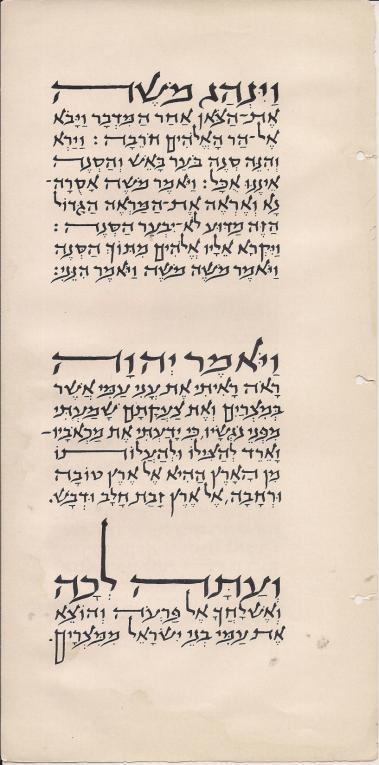 וַיִּנְהַג מֹשֶׁה
אֶת־הַצֹּאן אַחַר הַמִּדְבָּר וַיָּבֹא
אֶל־הַר הָאֱלֹהִים חֹרֵבָה : וַיַּרְא
וְהִנֵּה סְנֶה בֹּעֵר בָּאֵשׁ וְהַסְּנֶה
אֵינֶנּוּ אֻכָּל : וַיֹּאמֶר מֹשֶׁה אָסֻרָה־
נָּא וְאֶרְאֶה אֶת־הַמַּרְאֶה הַגָּדוֹל
הַזֶּה מַדּוּעַ לֹא־יִבְעַר הַסְּנֶה :
וַיִּקְרָא אֵלָיו אֱלֹהִים מִתּוֹךְ הַסְּנֶה
וַיֹּאמֶר מֹשֶׁה מֹשֶׁה וַיֹּאמֶר הִנֵּנִי :
וַיֹּאמֶר יְהוָה
רָאֹה רָאִיתִי אֶת עֳנִי עַמִּי אֲשֶׁר
בְּמִצְרָיִם וְאֶת צַעֲקָתָם שָׁמַעְתִּי
מִפְּנֵי נֹגְשָׂיו, כִּי יָדַעְתִּי אֶת מַכְאֹבָיו־
וָאֵרֵד לְהַצִּילוֹ וּלְהַעֲלוֹתוֹ
מִן הָאָרֶץ הַהִיא אֶל אֶרֶץ טוֹבָה
וּרְחָבָה, אֶל אֶרֶץ זָבַת חָלָב וּדְבָשׁ.
וְעַתָּה לְכָה
וְאֶשְׁלָחֲךָ אֶל פַּרְעֹה וְהוֹצֵא
אֶת עַמִּי בְּנֵי יִשְׂרָאֵל מִמִּצְרָיִם.